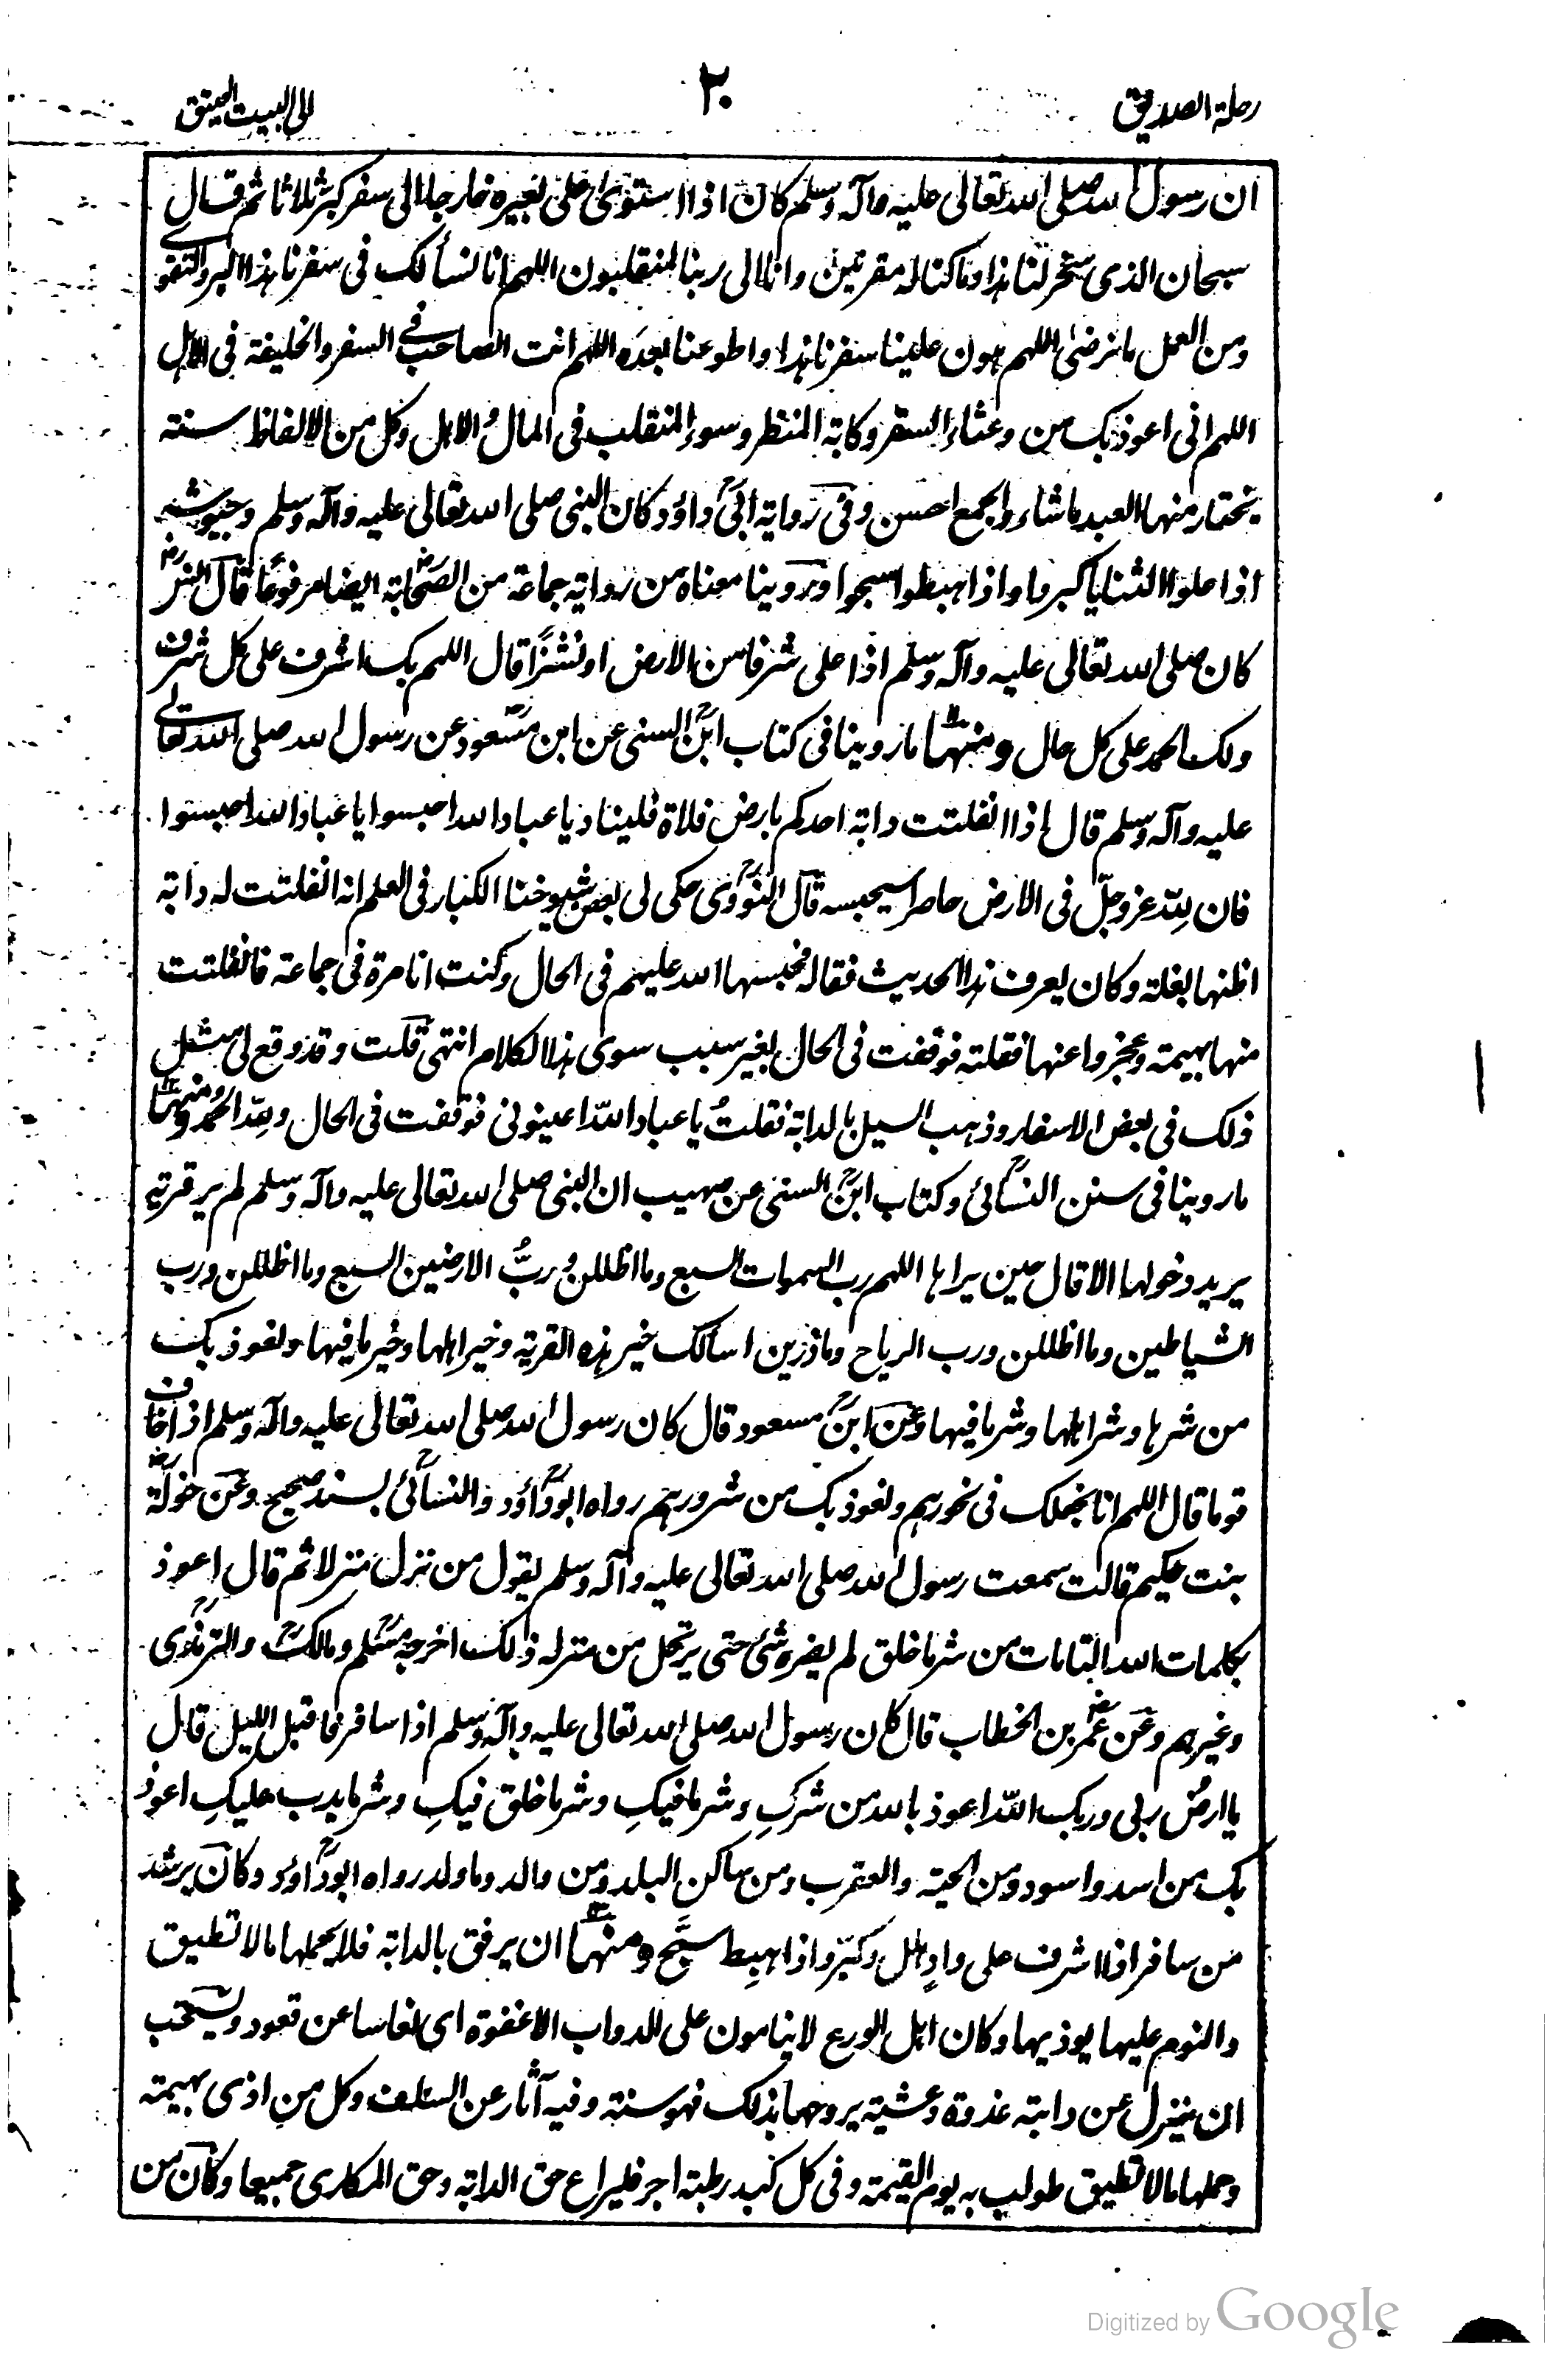 رحلة الصديق
٣٠
الى البيت العتيق
ان رسول الله صلى الله تعالى عليه وآله وسلم كان اذا استوى على بعيره خارجا الى سفر كبر ثلاثا ثم قال
سبحان الذى سخر لنا هذا وما كنا له مقرنين وانا الى ربنا لمنقلبون اللهم انا نسألك فى سفرنا هذا البر والتقوى
ومن العمل ما ترضى اللهم هون علينا سفرنا هذا واطو عنا بعده اللهم انت الصاحب فى السفر والخليفة فى الاهل
اللهم انى اعوذ بك من وعثاء السفر وكابة المنظر وسوء المنقلب فى المال والاهل وكل من الالفاظ سنة
يختار منها العبد ما شاء والجمع احسن وفى رواية ابى داؤد كان النبى صلى الله تعالى عليه وآله وسلم وجيوشه
اذا علوا الثنايا كبروا واذا هبطوا سبحوا وروينا معناه من رواية جماعة من الصحابة ايضا مرفوعا قال انس
كان صلى الله تعالى عليه وآله وسلم اذا على شرفا من الارض او نشزا قال اللهم بك اشرف على كل شرف
ولك الحمد على كل حال ومنها ما روينا فى كتاب ابن السنى عن ابن مسعود عن رسول الله صلى الله تعالى
عليه وآله وسلم قال اذا انفلتت دابة احدكم بارض فلاة فليناد يا عباد الله احبسوا يا عباد الله احبسوا
فان لله عز وجل فى الارض حاصرا سيحبسه قال النووى حكى لى بعض شيوخنا الكبار فى العلم انه انفلتت له دابة
اظنها بغلة وكان يعرف هذا الحديث فقاله فحبسها الله عليهم فى الحال وكنت انا مرة فى جماعة فانفلتت
منها بهيمة وعجزوا عنها فقلته فوقفت فى الحال بغير سبب سوى هذا الكلام انتهى قلت وقد وقع لى مثل
ذلك فى بعض الاسفار وذهب السيل بالدابة فقلت يا عباد الله اعينونى فوقفت فى الحال ولله الحمد ومنها
ما روينا فى سنن النسائى وكتاب ابن السنى عن صهيب ان النبى صلى الله تعالى عليه وآله وسلم لم ير قرية
يريد دخولها الا قال حين يراها اللهم رب السموات السبع وما اظللن ورب الارضين السبع وما اظللن ورب
الشياطين وما اظللن ورب الرياح وما ذرين اسالك خير هذه القرية وخير اهلها وخير ما فيها ونعوذ بك
من شرها وشر اهلها وشر ما فيها وعن ابن مسعود قال كان رسول الله صلى الله تعالى عليه وآله وسلم اذا خاف
قوما قال اللهم انا نجعلك فى نحورهم ونعوذ بك من شرورهم رواه ابوداؤد والنسائى بسند صحيح وعن خولة
بنت حكيم قالت سمعت رسول الله صلى الله تعالى عليه وآله وسلم يقول من نزل منزلا ثم قال اعوذ
بكلمات الله التامات من شر ما خلق لم يضره شئ حتى يرتحل من منزله ذلك اخرجه مسلم ومالك والترمذى
وغيرهم وعن عمر بن الخطاب قال كان رسول الله صلى الله تعالى عليه وآله وسلم اذا سافر فاقبل الليل قال
يا ارض ربى وربك الله اعوذ بالله من شركِ وشر ما فيكِ وشر ما خلق فيكِ وشر ما يدب عليكِ اعوذ
بك من اسد واسود ومن الحية والعقرب ومن ساكن البلد ومن والد وما ولد رواه ابوداؤد وكان يرشد
من سافر اذا اشرف على وادٍ هلل وكبر واذا هبط سبح ومنها ان يرفق بالدابة فلا يحملها ما لا تطيق
والنوم عليها يوذيها وكان اهل الورع لا ينامون على الدواب الا غفوة اى نعاسا عن قعود ويستحب
ان ينزل عن دابته غدوة وعشية يروحها بذلك فهو سنة وفيه آثار عن السلف وكل من اذى بهيمة
وحملها ما لا تطيق طولب به يوم القيمة وفى كل كبد رطبة اجر فليراع حق الدابة وحق المكارى جميعا وكان من
Digitized by Google